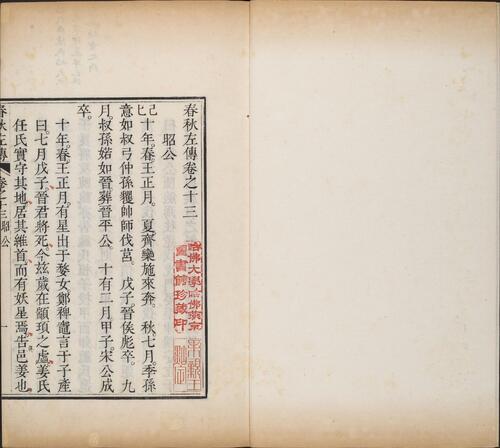 春秋左傳卷之十三
昭公
十年。春王正月。夏齊欒施來奔。秋七月。季孫
意如叔弓仲孫貜帥師伐莒。戊子晉侯彪卒。九
月。叔孫婼如晉葬晉平公。十有二月甲子宋公成
卒。
十年。春王正月。有星出于婺女鄭裨竈言于子產
曰。七月戊子。晉君將死。今茲歲在顓頊之虛。姜氏
任氏實守其地。居其維首。而有妖星焉。告邑姜也。
春秋左傳 卷之十三 昭公 一
哈佛大學哈佛燕京
圖書館珍藏印